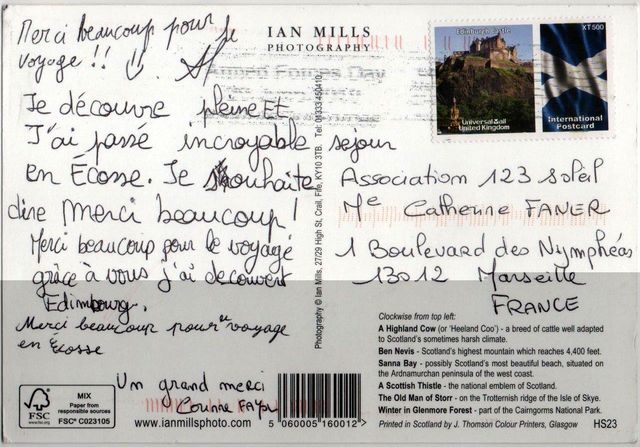 Merci beaucoup pour le
voyage !!
Je découvre pleine Et
J'ai passé incroyable sejour
en Écosse. Je souhaite
dire merci beaucoup !
Merci beaucoup pour le voyage
grâce à vous j'ai decouvert
Edimbourg.
Merci beaucoup pour voyage
en Écosse
Un grand merci
Corinne
IAN MILLS
PHOTOGRAPHY
Armed Forces Day
Edinburgh Castle
Universal@all
United Kingdom
XT500
International
Postcard
Association 123 Soleil
Me Catherine FANER
1 Boulevard des Nymphéas
13012 Marseille
FRANCE
Photography © Ian Mills, 27/29 High St, Crail, Fife, KY10 3TB. Tel: 01333 450410
Clockwise from top left:
A Highland Cow (or 'Heeland Coo') - a breed of cattle well adapted
to Scotland's sometimes harsh climate.
Ben Nevis - Scotland's highest mountain which reaches 4,400 feet.
Sanna Bay - possibly Scotland's most beautiful beach, situated on
the Ardnamurchan peninsula of the west coast.
A Scottish Thistle - the national emblem of Scotland.
The Old Man of Storr - on the Trotternish ridge of the Isle of Skye.
Winter in Glenmore Forest - part of the Cairngorms National Park.
Printed in Scotland by J. Thomson Colour Printers, Glasgow
HS23
FSC
www.fsc.org
MIX
Paper from
responsible sources
FSC® C023105
www.ianmillsphoto.com
5 060005 160012 >